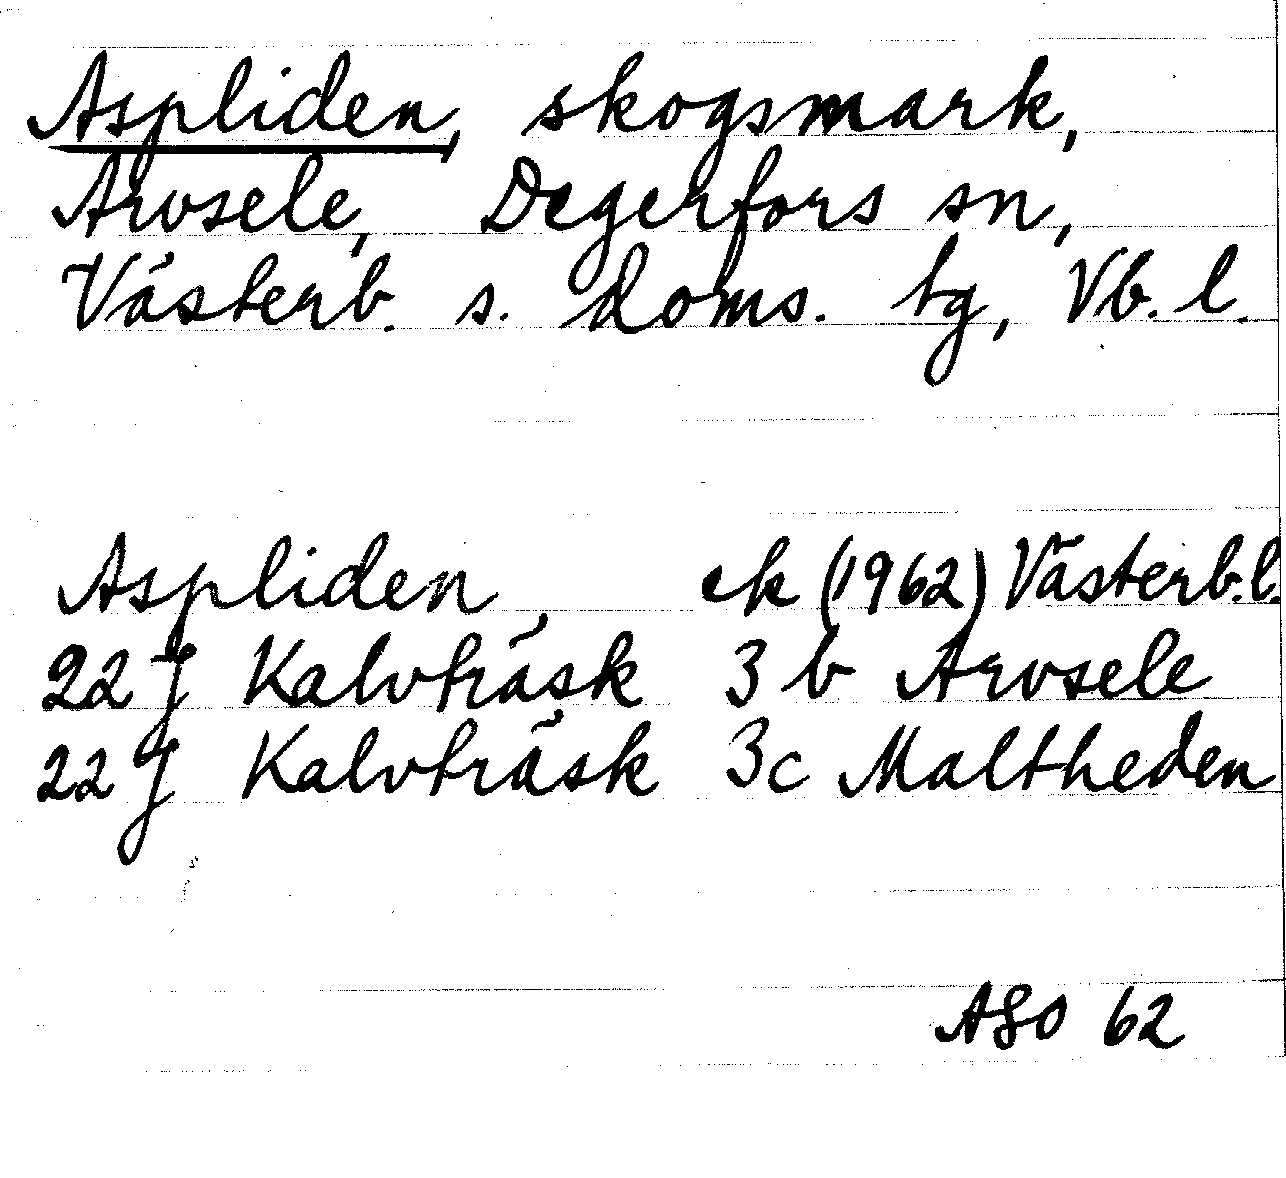 Aspliden, skogsmark,
Arvsele, Degerfors sn,
Västerb. s. doms. tg, Vb. l.
Aspliden ek (1962) Västerb.l.
22 J Kalvträsk 3 b Arvsele
22 J Kalvträsk 3c Maltheden
ASO 62